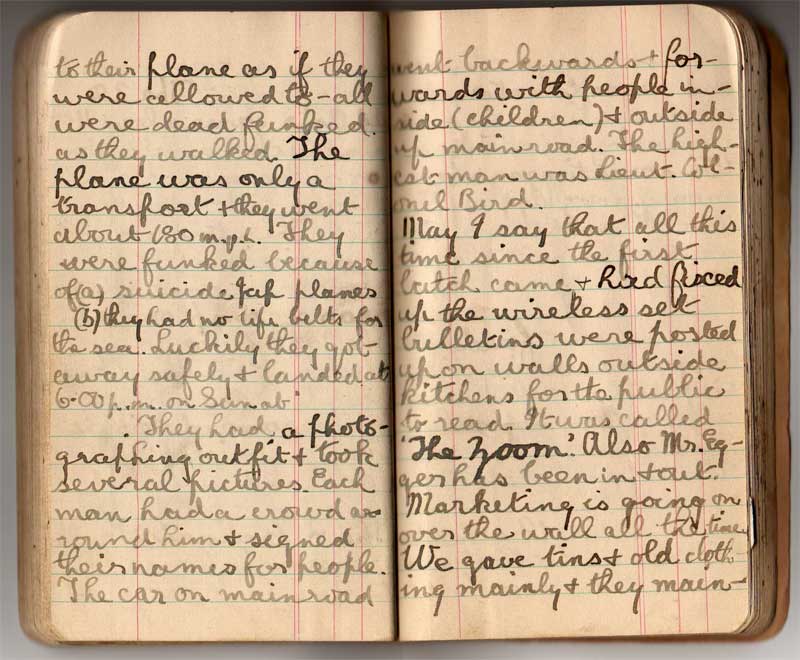 to their plane as if they
were allowed to - all
were dead funked.
as they walked. The
plane was only a
transport + they went
about 180 m.p.h. They
were funked because
of (a) suicide Jap planes
(b) they had no life belts for
the sea. Luckily they got
away safely + landed at
6.00 p.m. on Sunab
They had a photo-
graphing outfit + took
several pictures. Each
man had a crowd ar-
round him + signed
their names for people.
The car on main road
went backwards + for-
wards with people in-
side (children) + outside
up main road. The high-
est man was Lieut. Col-
onil Bird.
May I say that all this
time since the first
batch came + had fixed
up the wireless set
bulletins were posted
up on walls outside
kitchens for the public
to read. It was called
'The Zoom'. Also Mr. Eg-
ger has been in + out.
Marketing is going on
over the wall all the time
We gave tins + old cloth-
ing mainly + they main-